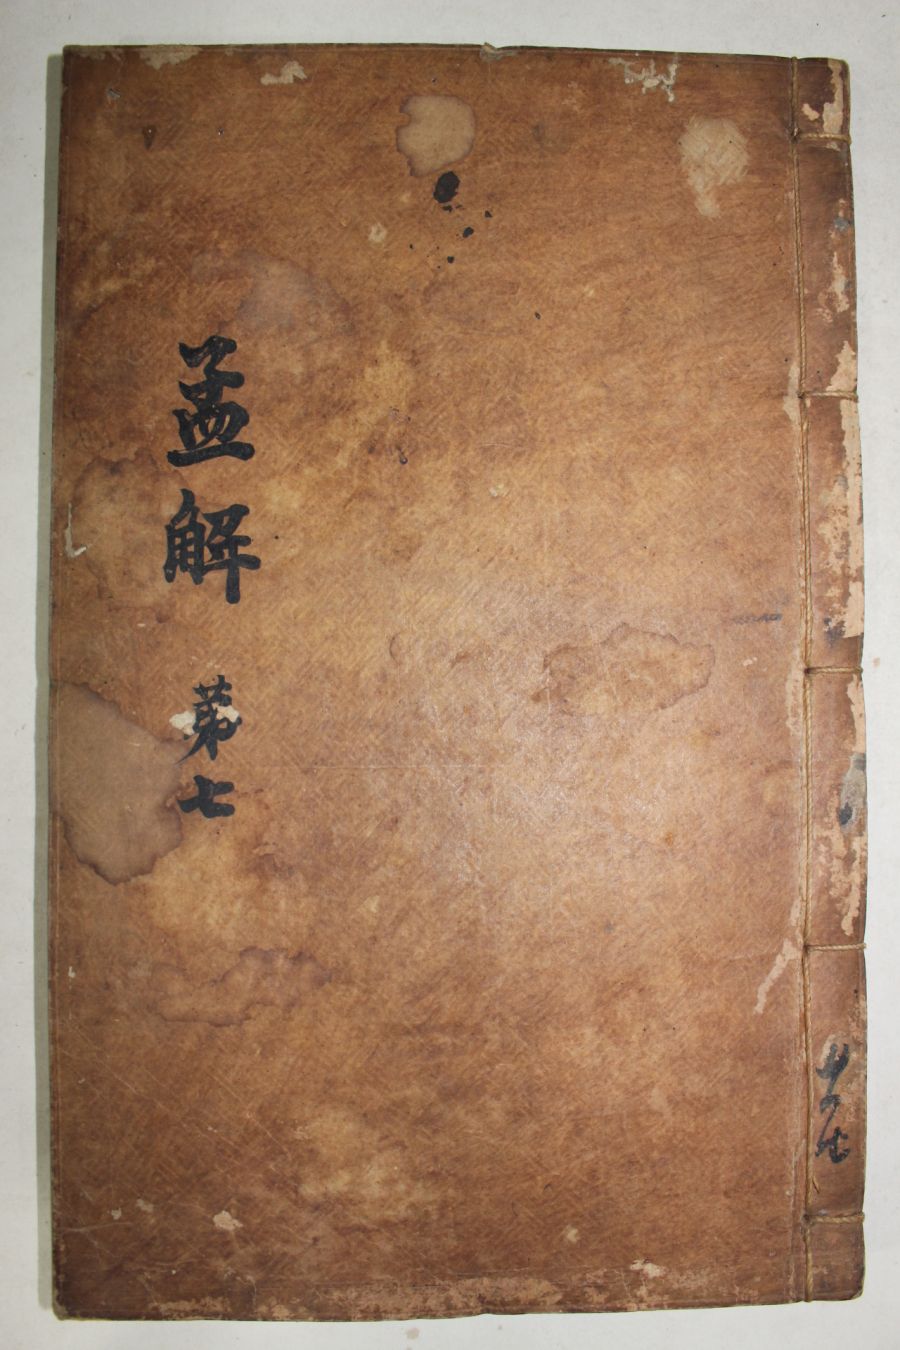 孟解 第七
共七